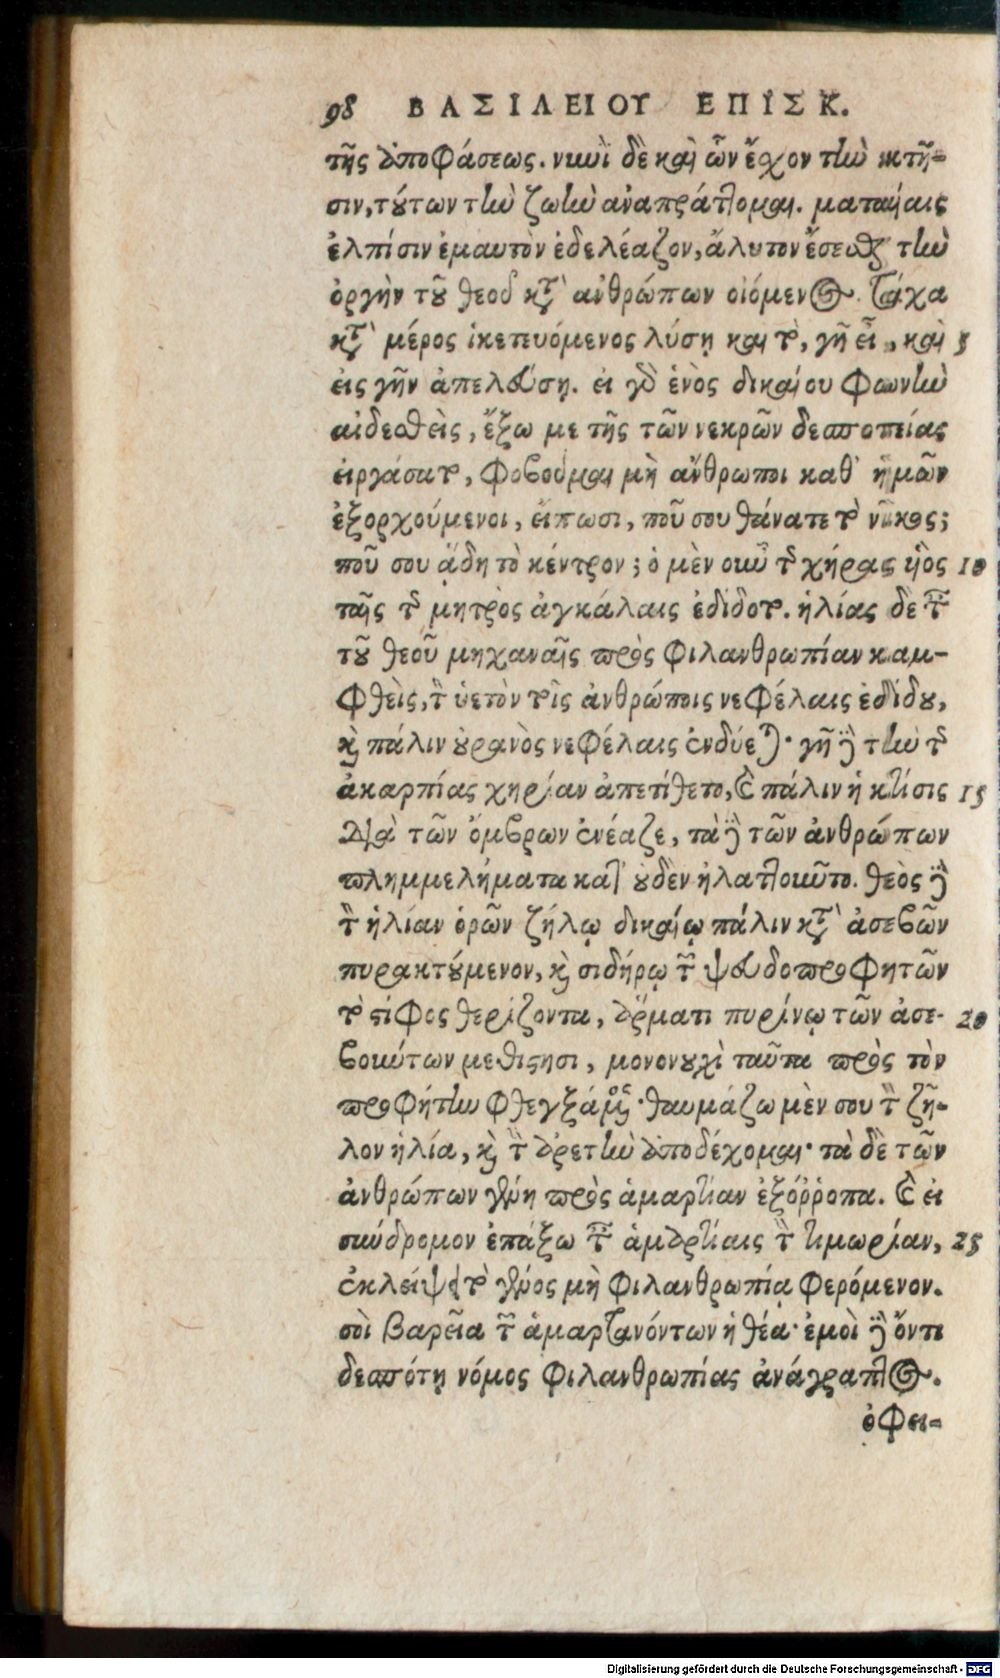 98 ΒΑΣΙΛΕΙΟΥ ΕΠΙΣΚ.
τῆς ἀποφάσεως. νυνὶ δὲ καὶ ὧν ἔχον τὴν κτῆ-
σιν, τούτων τὴν ζωὴν ἀναπράττομαι. ματαίαις
ἐλπίσιν ἐμαυτὸν ἐδελέαζον, ἄλυτον ἔσεσθαι τὴν
ὀργὴν τοῦ θεοῦ κατὰ ἀνθρώπων οἰόμενος. τάχα
κατὰ μέρος ἱκετευόμενος λύσῃ καὶ τὸ, γῆ εἶ, καὶ 5
εἰς γῆν ἀπελεύσῃ. εἰ γὰρ ἑνὸς δικαίου φωνὴν
αἰδεσθεὶς, ἔξω με τῆς τῶν νεκρῶν δεσποτείας
εἰργάσατο, φοβοῦμαι μὴ ἄνθρωποι καθ' ἡμῶν
ἐξορχούμενοι, εἴπωσι, ποῦ σου θάνατε τὸ νῖκος;
ποῦ σου ᾅδη τὸ κέντρον; ὁ μὲν οὖν τῆς χήρας υἱὸς 10
ταῖς τῆς μητρὸς ἀγκάλαις ἐδίδοτο. ἡλίας δὲ ταῖς
τοῦ θεοῦ μηχαναῖς πρὸς φιλανθρωπίαν καμ-
φθεὶς, τὸν ὑετὸν τοῖς ἀνθρώποις νεφέλαις ἐδίδου,
καὶ πάλιν οὐρανὸς νεφέλαις ἐνδύεται· γῆ δὲ τὴν τῆς
ἀκαρπίας χηρίαν ἀπετίθετο, καὶ πάλιν ἡ κτίσις 15
διὰ τῶν ὄμβρων ἐνέαζε, τὰ δὲ τῶν ἀνθρώπων
πλημμελήματα κατ' οὐδὲν ἠλαττοῦντο. θεὸς δὲ
τὸν ἡλίαν ὁρῶν ζήλῳ δικαίῳ πάλιν κατὰ ἀσεβῶν
πυρακτούμενον, καὶ σιδήρῳ τῶν ψευδοπροφητῶν
τὸ στίφος θερίζοντα, ἅρματι πυρίνῳ τῶν ἀσε- 20
βούντων μεθίστησι, μονονουχὶ ταῦτα πρὸς τὸν
προφήτην φθεγξάμενος· θαυμάζω μὲν σου τὸν ζῆ-
λον ἡλία, καὶ τὴν ἀρετὴν ἀποδέχομαι· τὰ δὲ τῶν
ἀνθρώπων γένη πρὸς ἁμαρτίαν ἐξόῤῥοπα. καὶ εἰ
σύνδρομον ἐπάξω ταῖς ἁμαρτίαις τὴν τιμωρίαν, 25
ἐκλείψει τὸ γένος μὴ φιλανθρωπίᾳ φερόμενον.
σοὶ βαρεῖα τῶν ἁμαρτανόντων ἡ θέα· ἐμοὶ δὲ ὄντι
δεσπότῃ νόμος φιλανθρωπίας ἀνάγραπτος.
ὀφει-
Digitalisierung gefördert durch die Deutsche Forschungsgemeinschaft - DFG